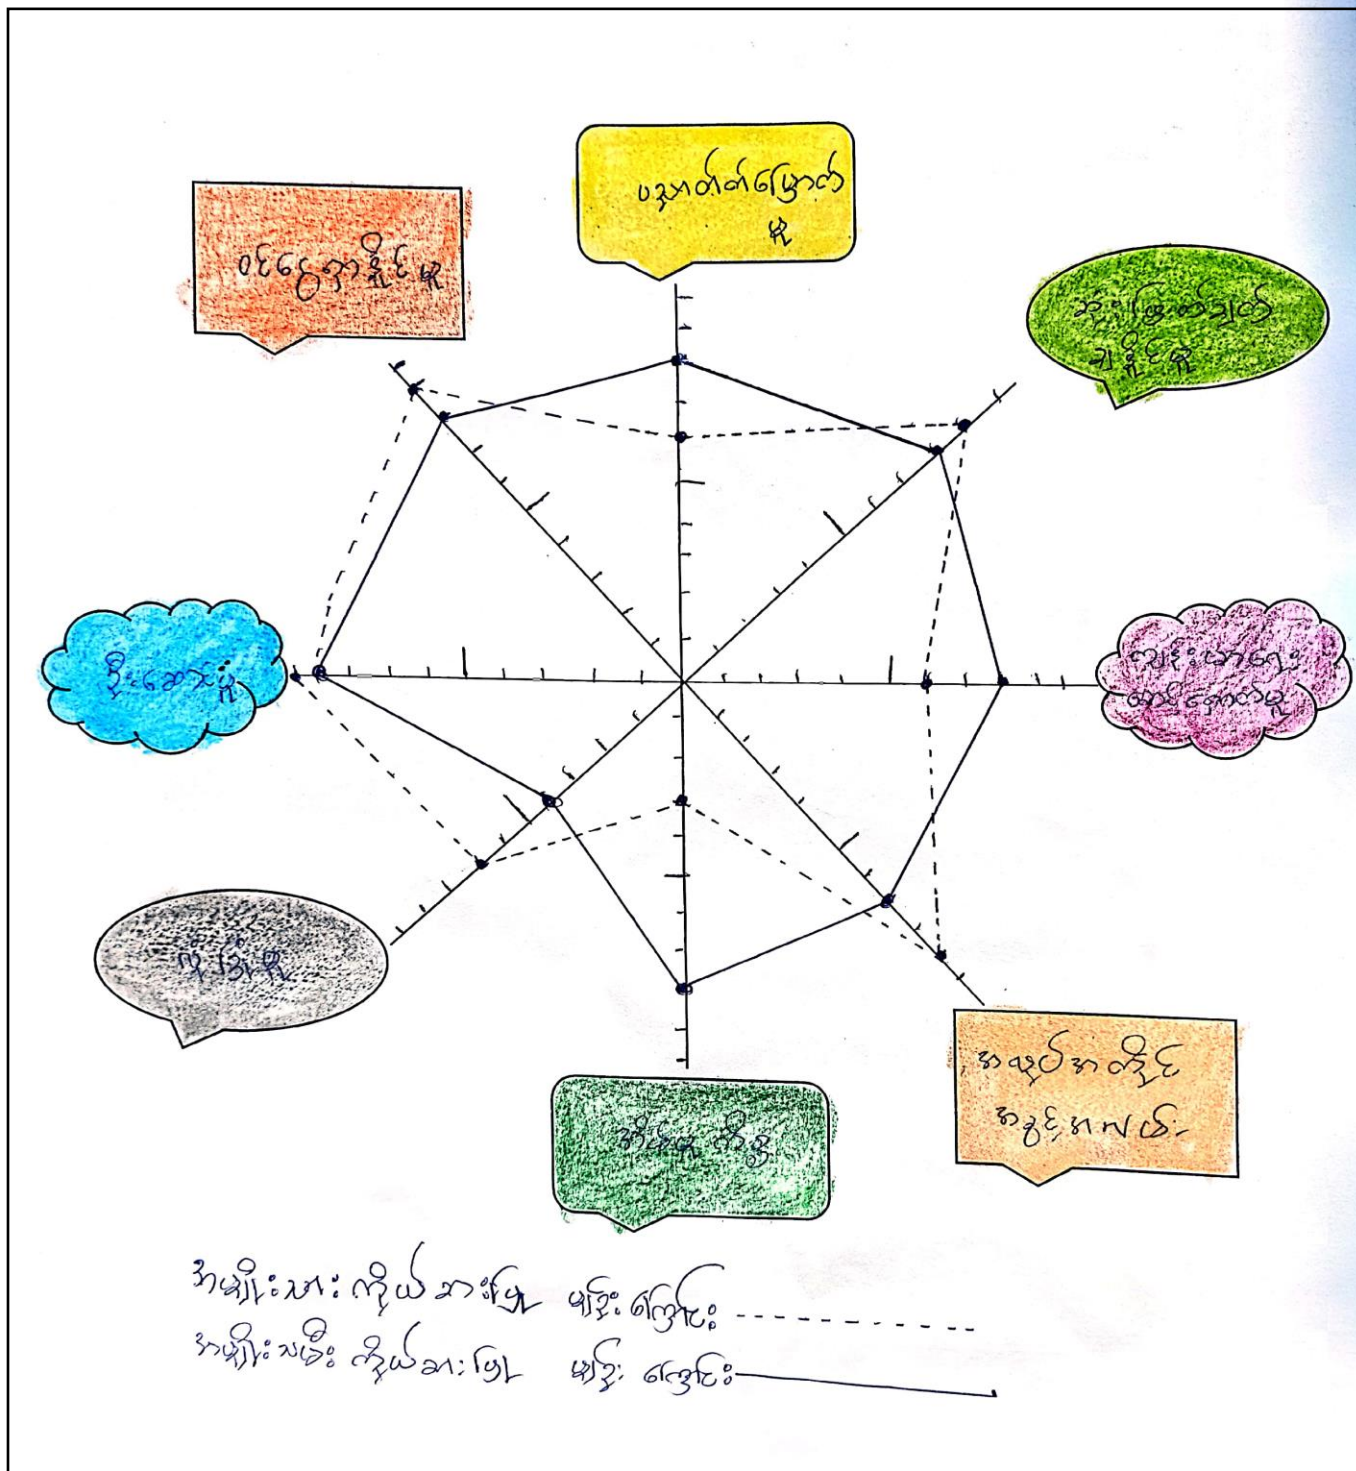 ပညာတတ်မြောက်
မှု
ဝင်ငွေရှာနိုင်မှု
ဆုံးဖြတ်ချက်
ချနိုင်မှု
ဦးဆောင်မှု
ကျန်းမာရေး
စောင့်ရှောက်မှု
လုံခြုံမှု
အလုပ်အကိုင်
အခွင့်အလမ်း
အိမ်မှုကိစ္စ
အမျိုးသား ကိုယ်စားပြု မျဉ်းကြောင်း
အမျိုးသမီး ကိုယ်စားပြု မျဉ်းကြောင်း